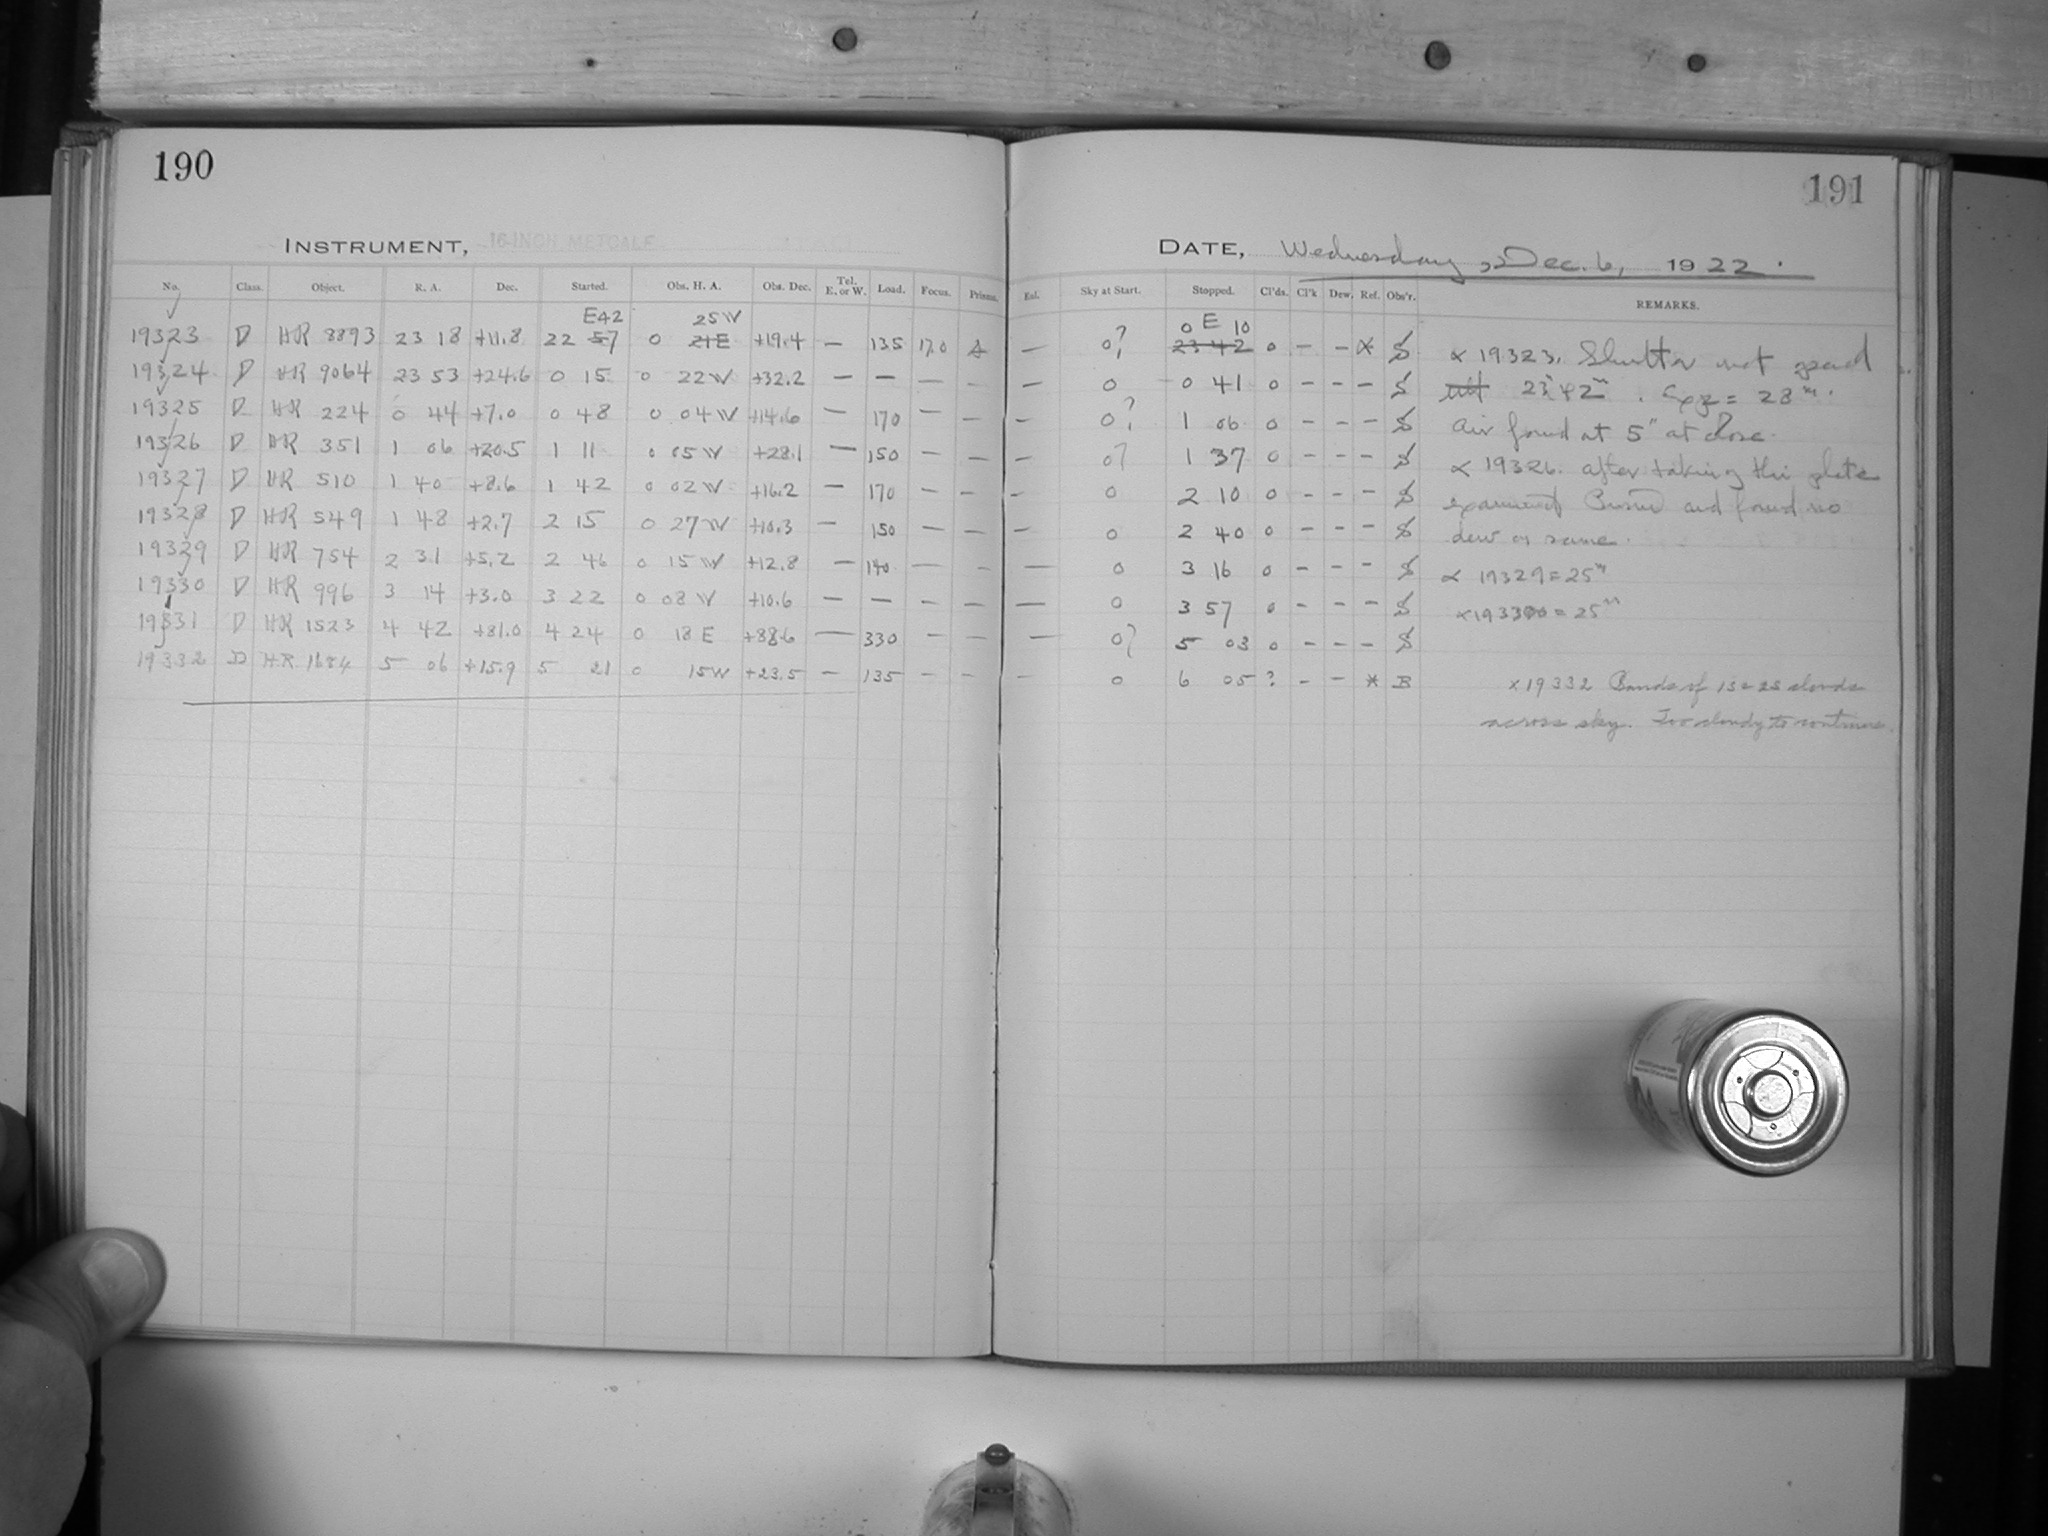 190
191
INSTRUMENT, 16-INCH METCALF
DATE, Wednesday, Dec. 6, 1922.
No. Class. Object. R. A. Dec. Started. Obs. H. A. Obs. Dec. Tel. E. or W. Load. Focus. Prisms. Exl. Sky at Start. Stopped. Cl'ds. Cl'k Dew. Ref. Obs'r. REMARKS.
E42 25W 0 E 10
19323 D HR 8893 23 18 +11.8 22 57 0 21E +19.4 — 135 17.0 A — 0? 23 42 0 – – X S x 19323. Shutter not opened
19324 D HR 9064 23 53 +24.6 0 15 0 22W +32.2 — — — — — 0 0 41 0 – – – S till 23h 42m. Exp = 28m.
19325 D HR 224 0 44 +7.0 0 48 0 04W +14.6 — 170 — — — 0? 1 06 0 – – – S Air found at 5" at close.
19326 D HR 351 1 06 +20.5 1 11 0 05W +28.1 — 150 — — — 0? 1 37 0 – – – S x 19326. After taking this plate
19327 D HR 510 1 40 +8.6 1 42 0 02W +16.2 — 170 — — – 0 2 10 0 – – – S examined Prism and found no
19328 D HR 549 1 48 +2.7 2 15 0 27W +10.3 — 150 — — 0 2 40 0 – – – S dew on same.
19329 D HR 754 2 31 +5.2 2 46 0 15W +12.8 — 140 — – — 0 3 16 0 – – – S x 19329 = 25m
19330 D HR 996 3 14 +3.0 3 22 0 08W +10.6 — — — — — 0 3 57 0 – – – S x 19330 = 25m
19331 D HR 1523 4 42 +81.0 4 24 0 18E +88.6 — 330 – — — 0? 5 03 0 – – – S
19332 D HR 1684 5 06 +15.9 5 21 0 15W +23.5 — 135 – – – 0 6 05 ? – – * B x 19332 Bands of clouds
across sky. Too cloudy to continue.